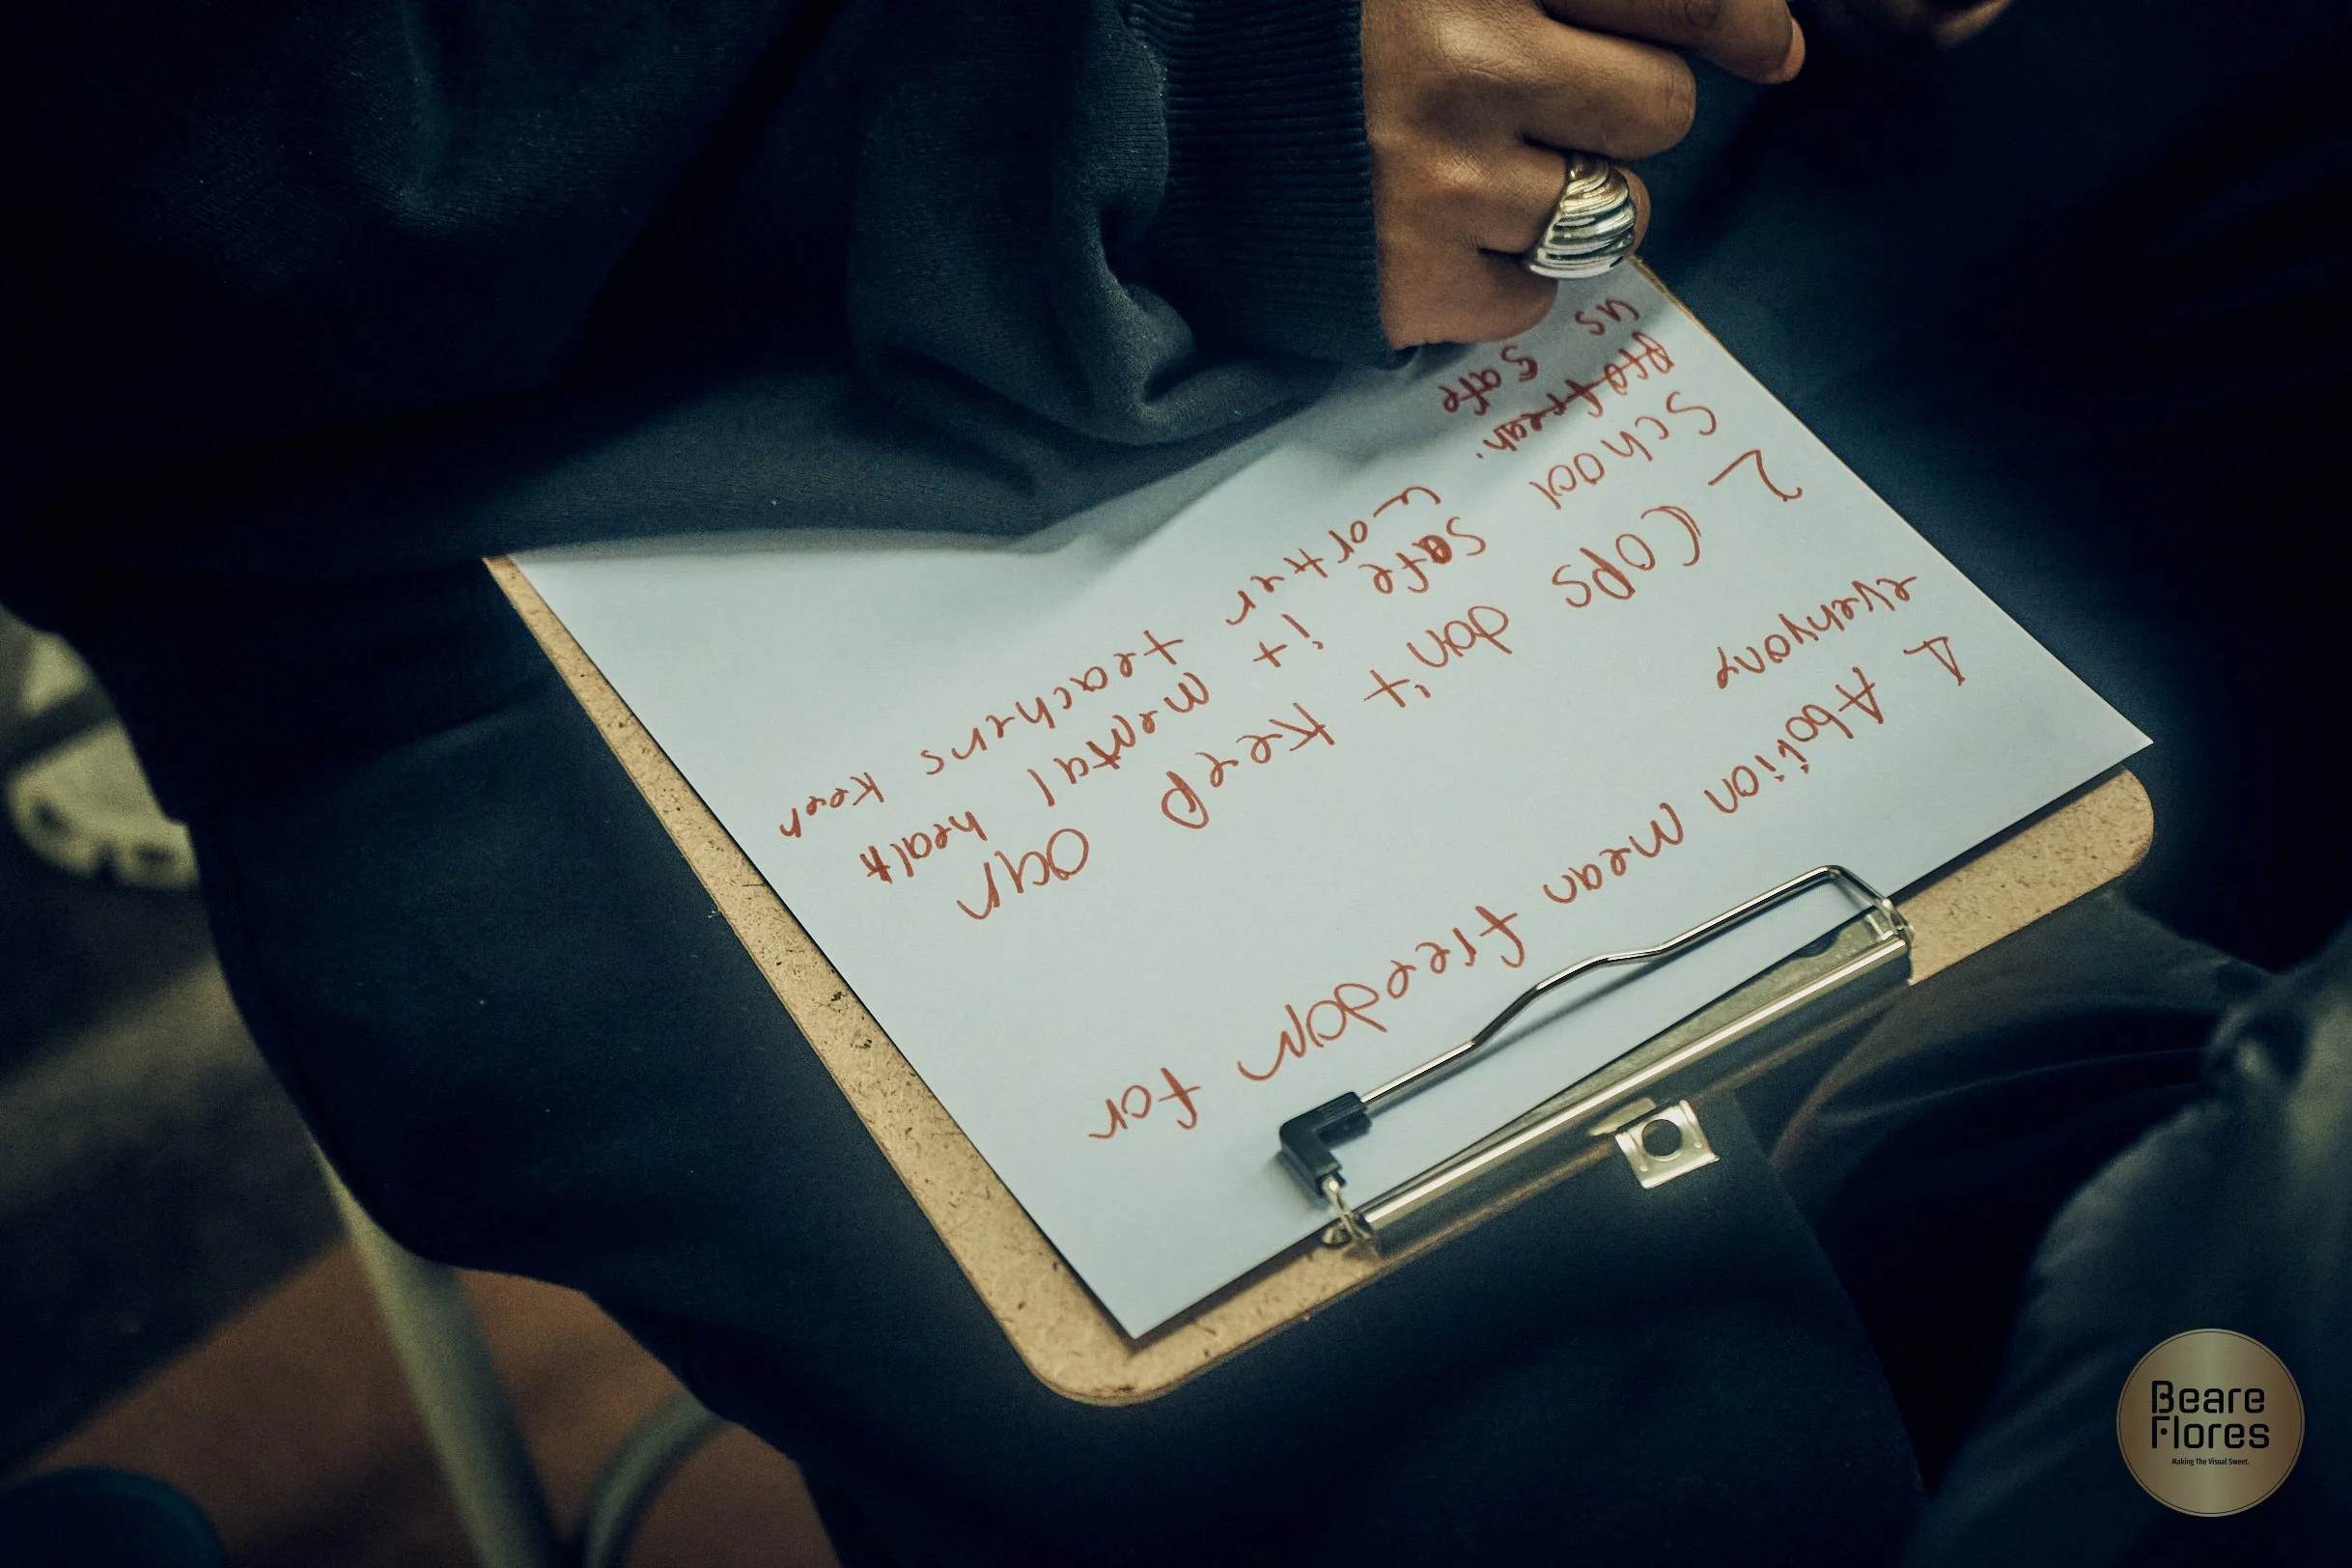 1 Abotion mean freedom for
everyone
2 Cops don't keep our
School safe it mental healt
worker teachers keep
us safe
Beare
Flores
Making The Visual Sweet.